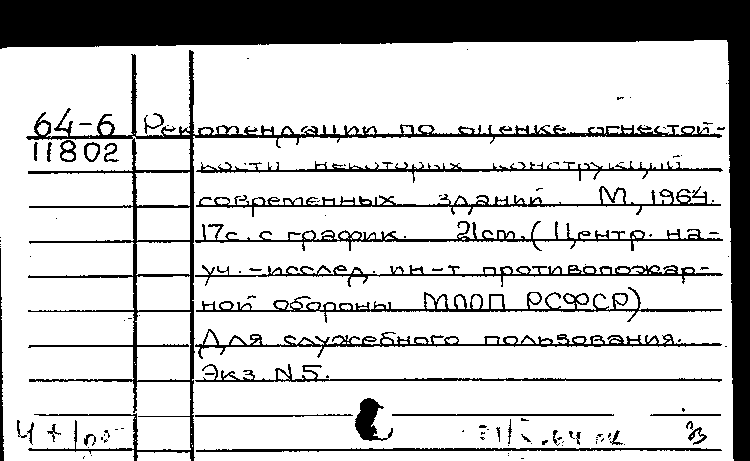 64-6 Рекомендации по оценке огнестой-
11802
кости некоторых конструкций
современных зданий. М., 1964.
17с. с график. 21cm. (Центр. на-
уч.-исслед. ин-т противопожар-
ной обороны МООП РСФСР)
Для служебного пользования.
Экз. N5.